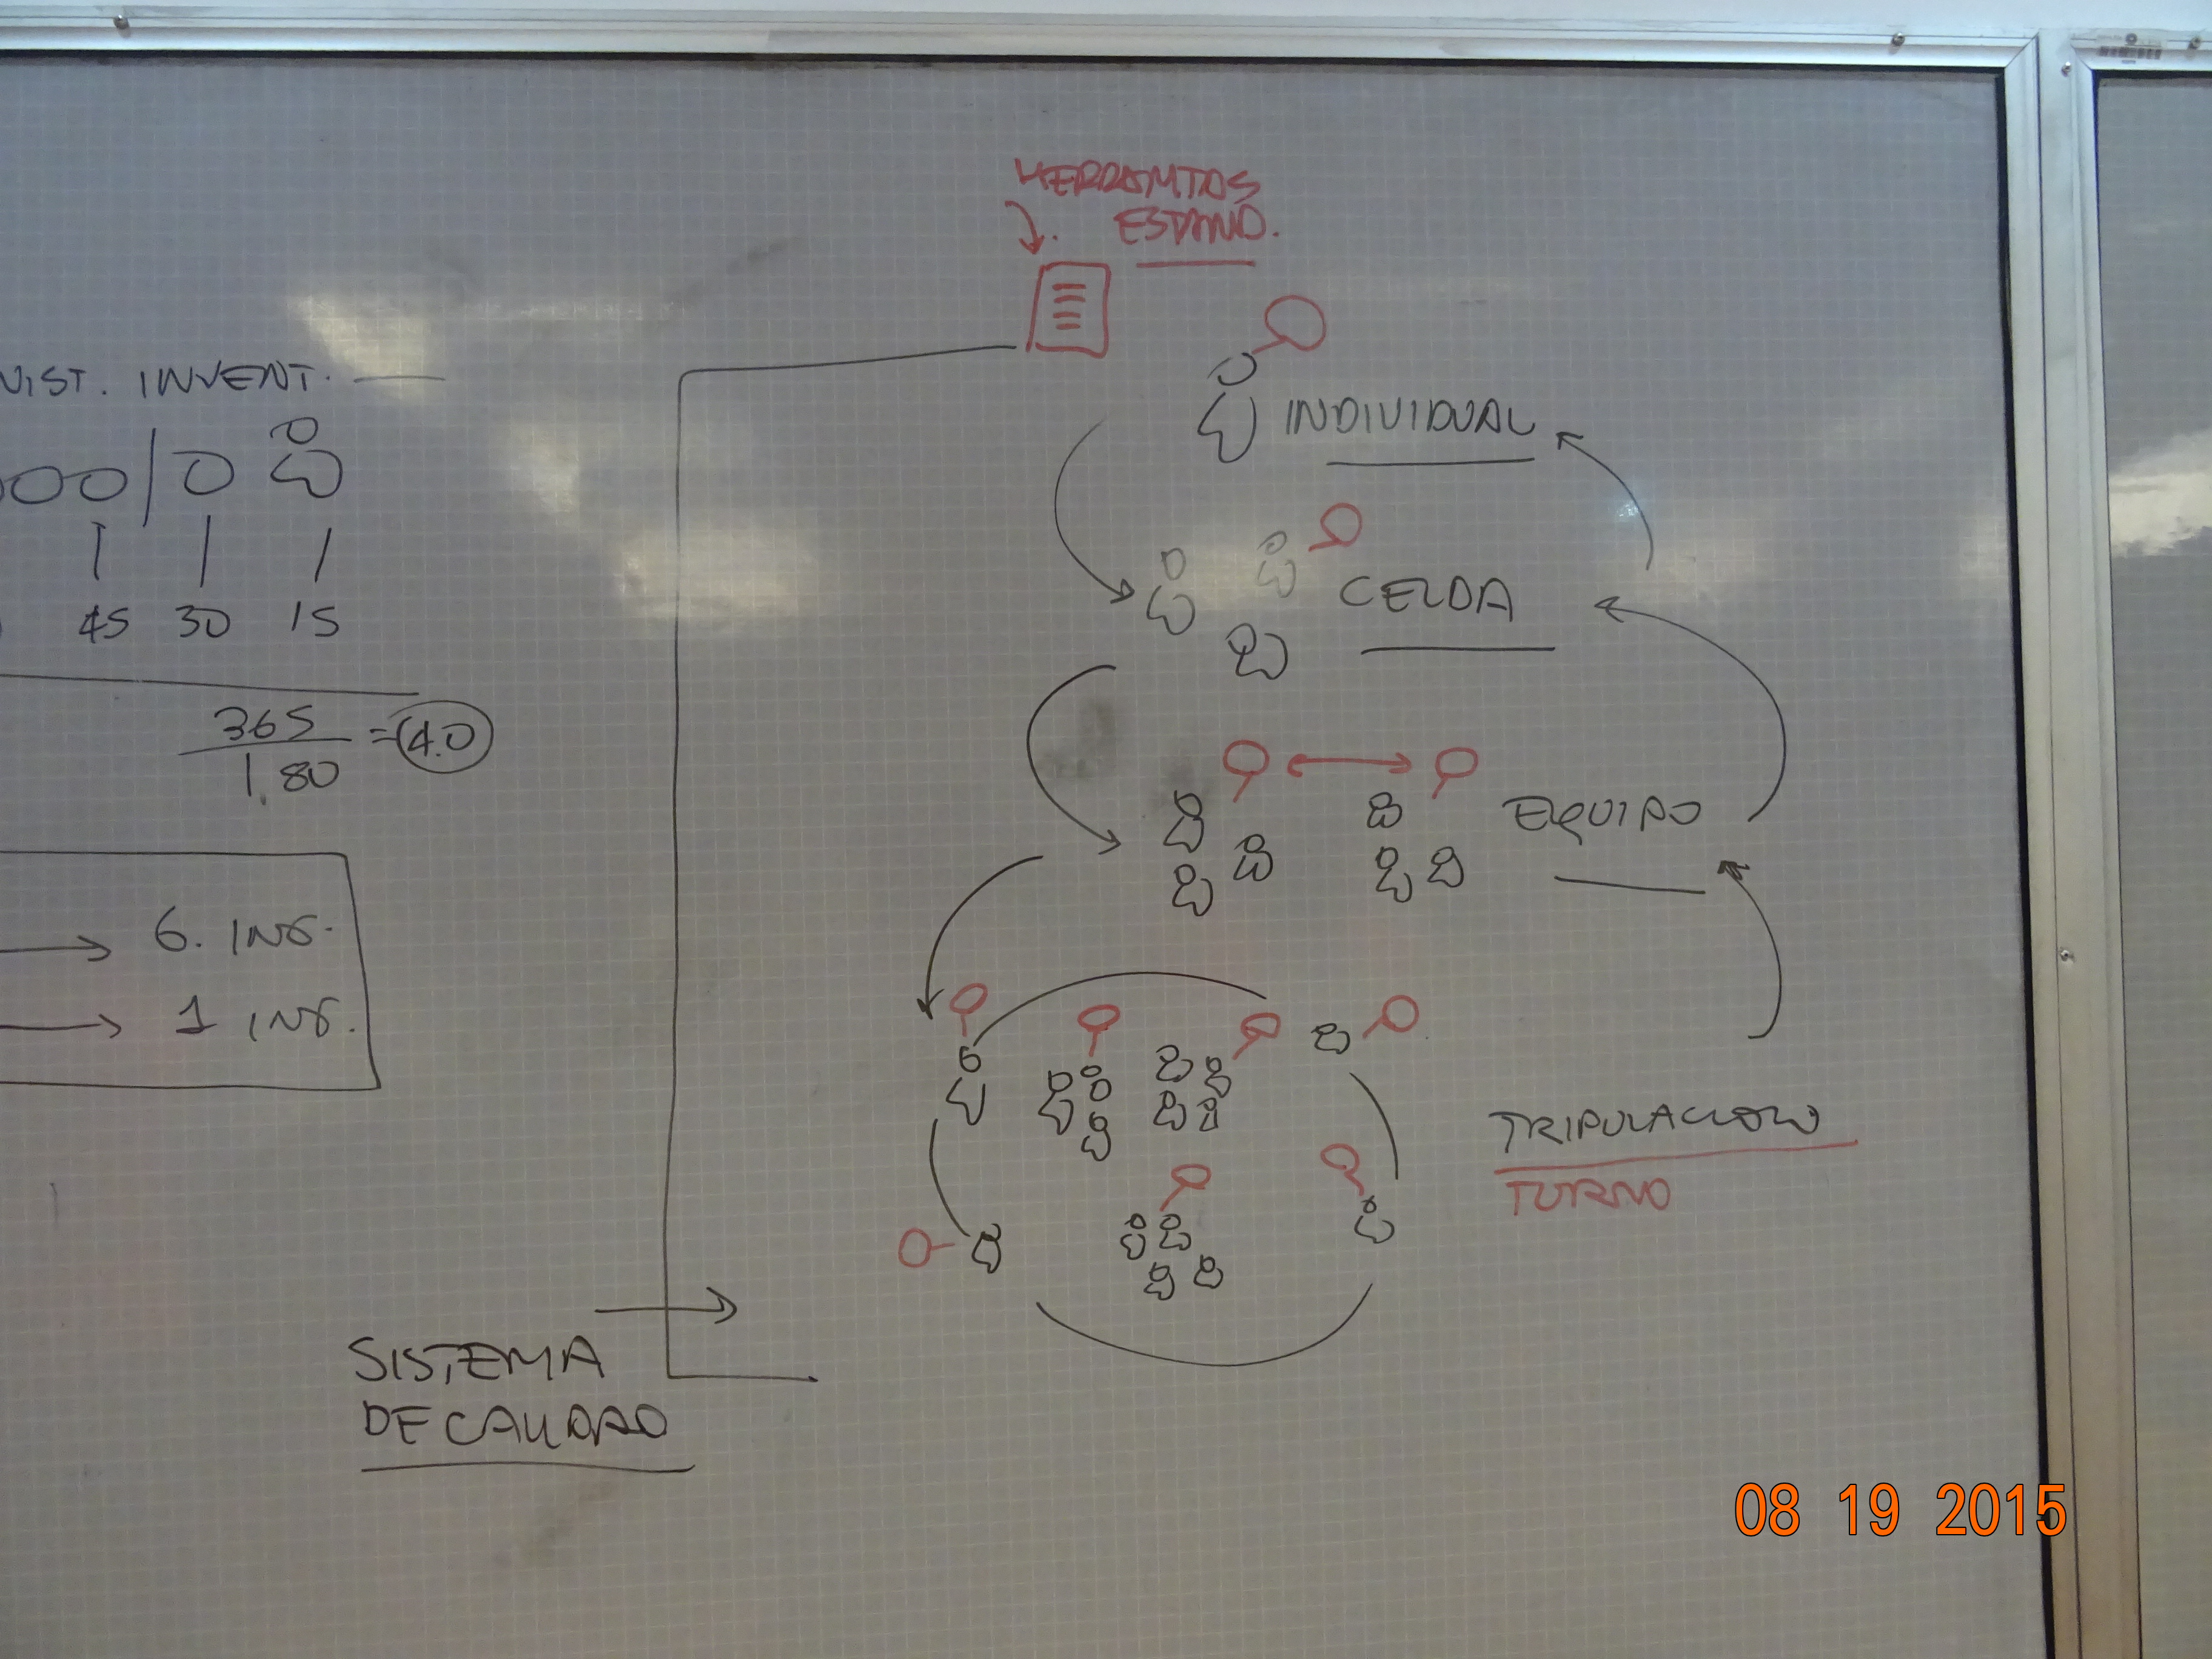 HERRAMTAS
ESTAND.
INDIVIDUAL
CELDA
EQUIPO
TRIPULACION
TURNO
INVENT.
45 30 15
365
1.80
=4.0
6. ING.
1 ING.
SISTEMA
DE CALIDAD
08 19 2015